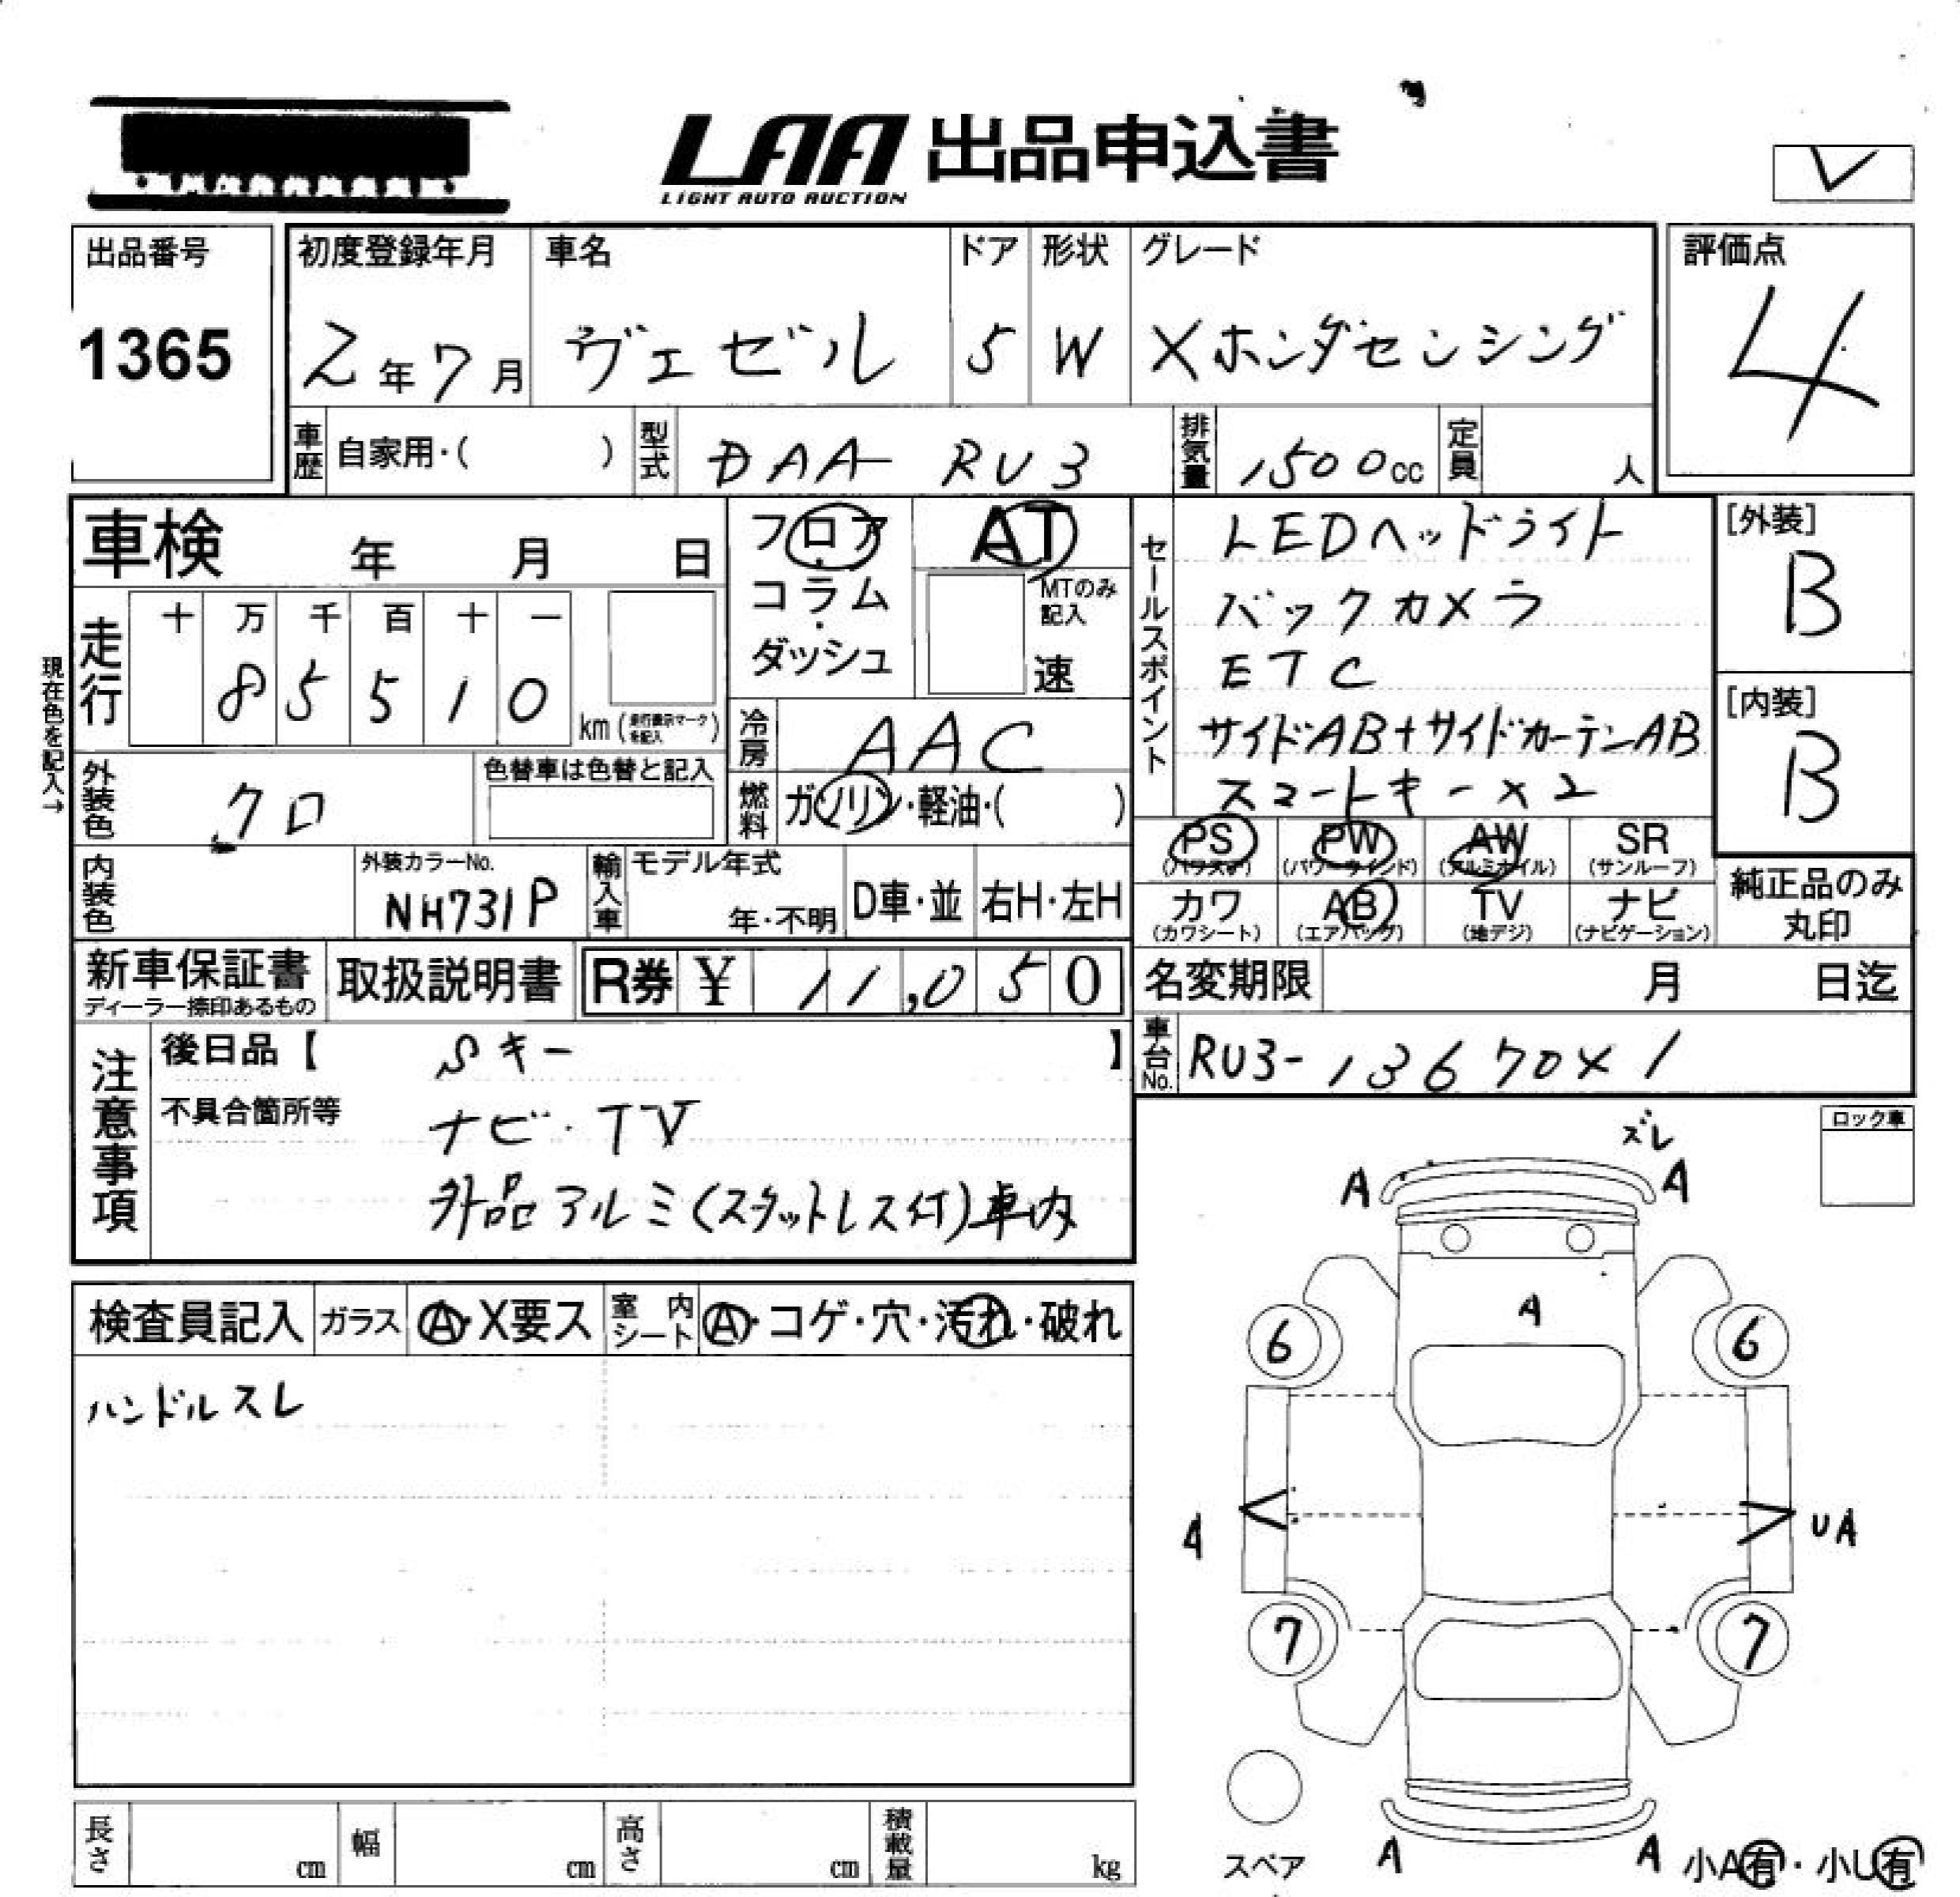 LAA 出品申込書
LIGHT AUTO AUCTION
レ
出品番号
1365
初度登録年月
2年7月
車名
ヴェゼル
ドア
5
形状
W
グレード
Xホンダセンシング
評価点
4
車歴 自家用・( )
型式 DAA RU3
排気量 1500cc
定員 人
車検 年 月 日
フロア・コラム・ダッシュ
AT
MTのみ記入
速
セールスポイント
LEDヘッドライト
バックカメラ
ETC
サイドAB+サイドカーテンAB
スマートキー×2
[外装]
B
[内装]
B
現在色を記入→
走行
十 万 千 百 十 一
8 5 5 1 0
km(走行表示マークを記入)
冷房 AAC
外装色 クロ
色替車は色替と記入
燃料 ガソリン・軽油・( )
PS (パワステ)
PW (パワーウインド)
AW (アルミホイル)
SR (サンルーフ)
カワ (カワシート)
AB (エアバッグ)
TV (地デジ)
ナビ (ナビゲーション)
純正品のみ丸印
内装色
外装カラーNo.
NH731P
輸入車
モデル年式
年・不明
D車・並
右H・左H
新車保証書
ディーラー捺印あるもの
取扱説明書
R券 ¥ 11,050
名変期限 月 日迄
車台No. RU3-13670×1
注意事項
後日品【 Sキー 】
不具合箇所等
ナビ・TV
外品アルミ(スタットレス付)車内
ロック車
ズレ
A A
検査員記入 ガラス A・X要ス 室内シート A・コゲ・穴・汚れ・破れ
ハンドルスレ
A
6 6
A UA
7 7
スペア
A A
小A有・小U有
長さ cm
幅 cm
高さ cm
積載量 kg